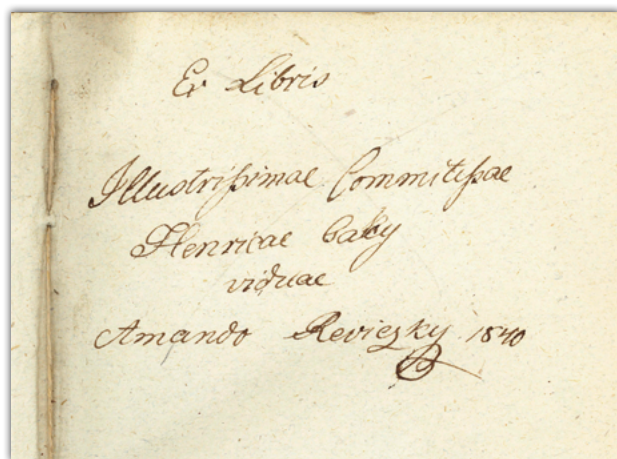 Ex Libris
Illustrissimae Commitissae
Henricae
viduae
Amando Reviczky 1840